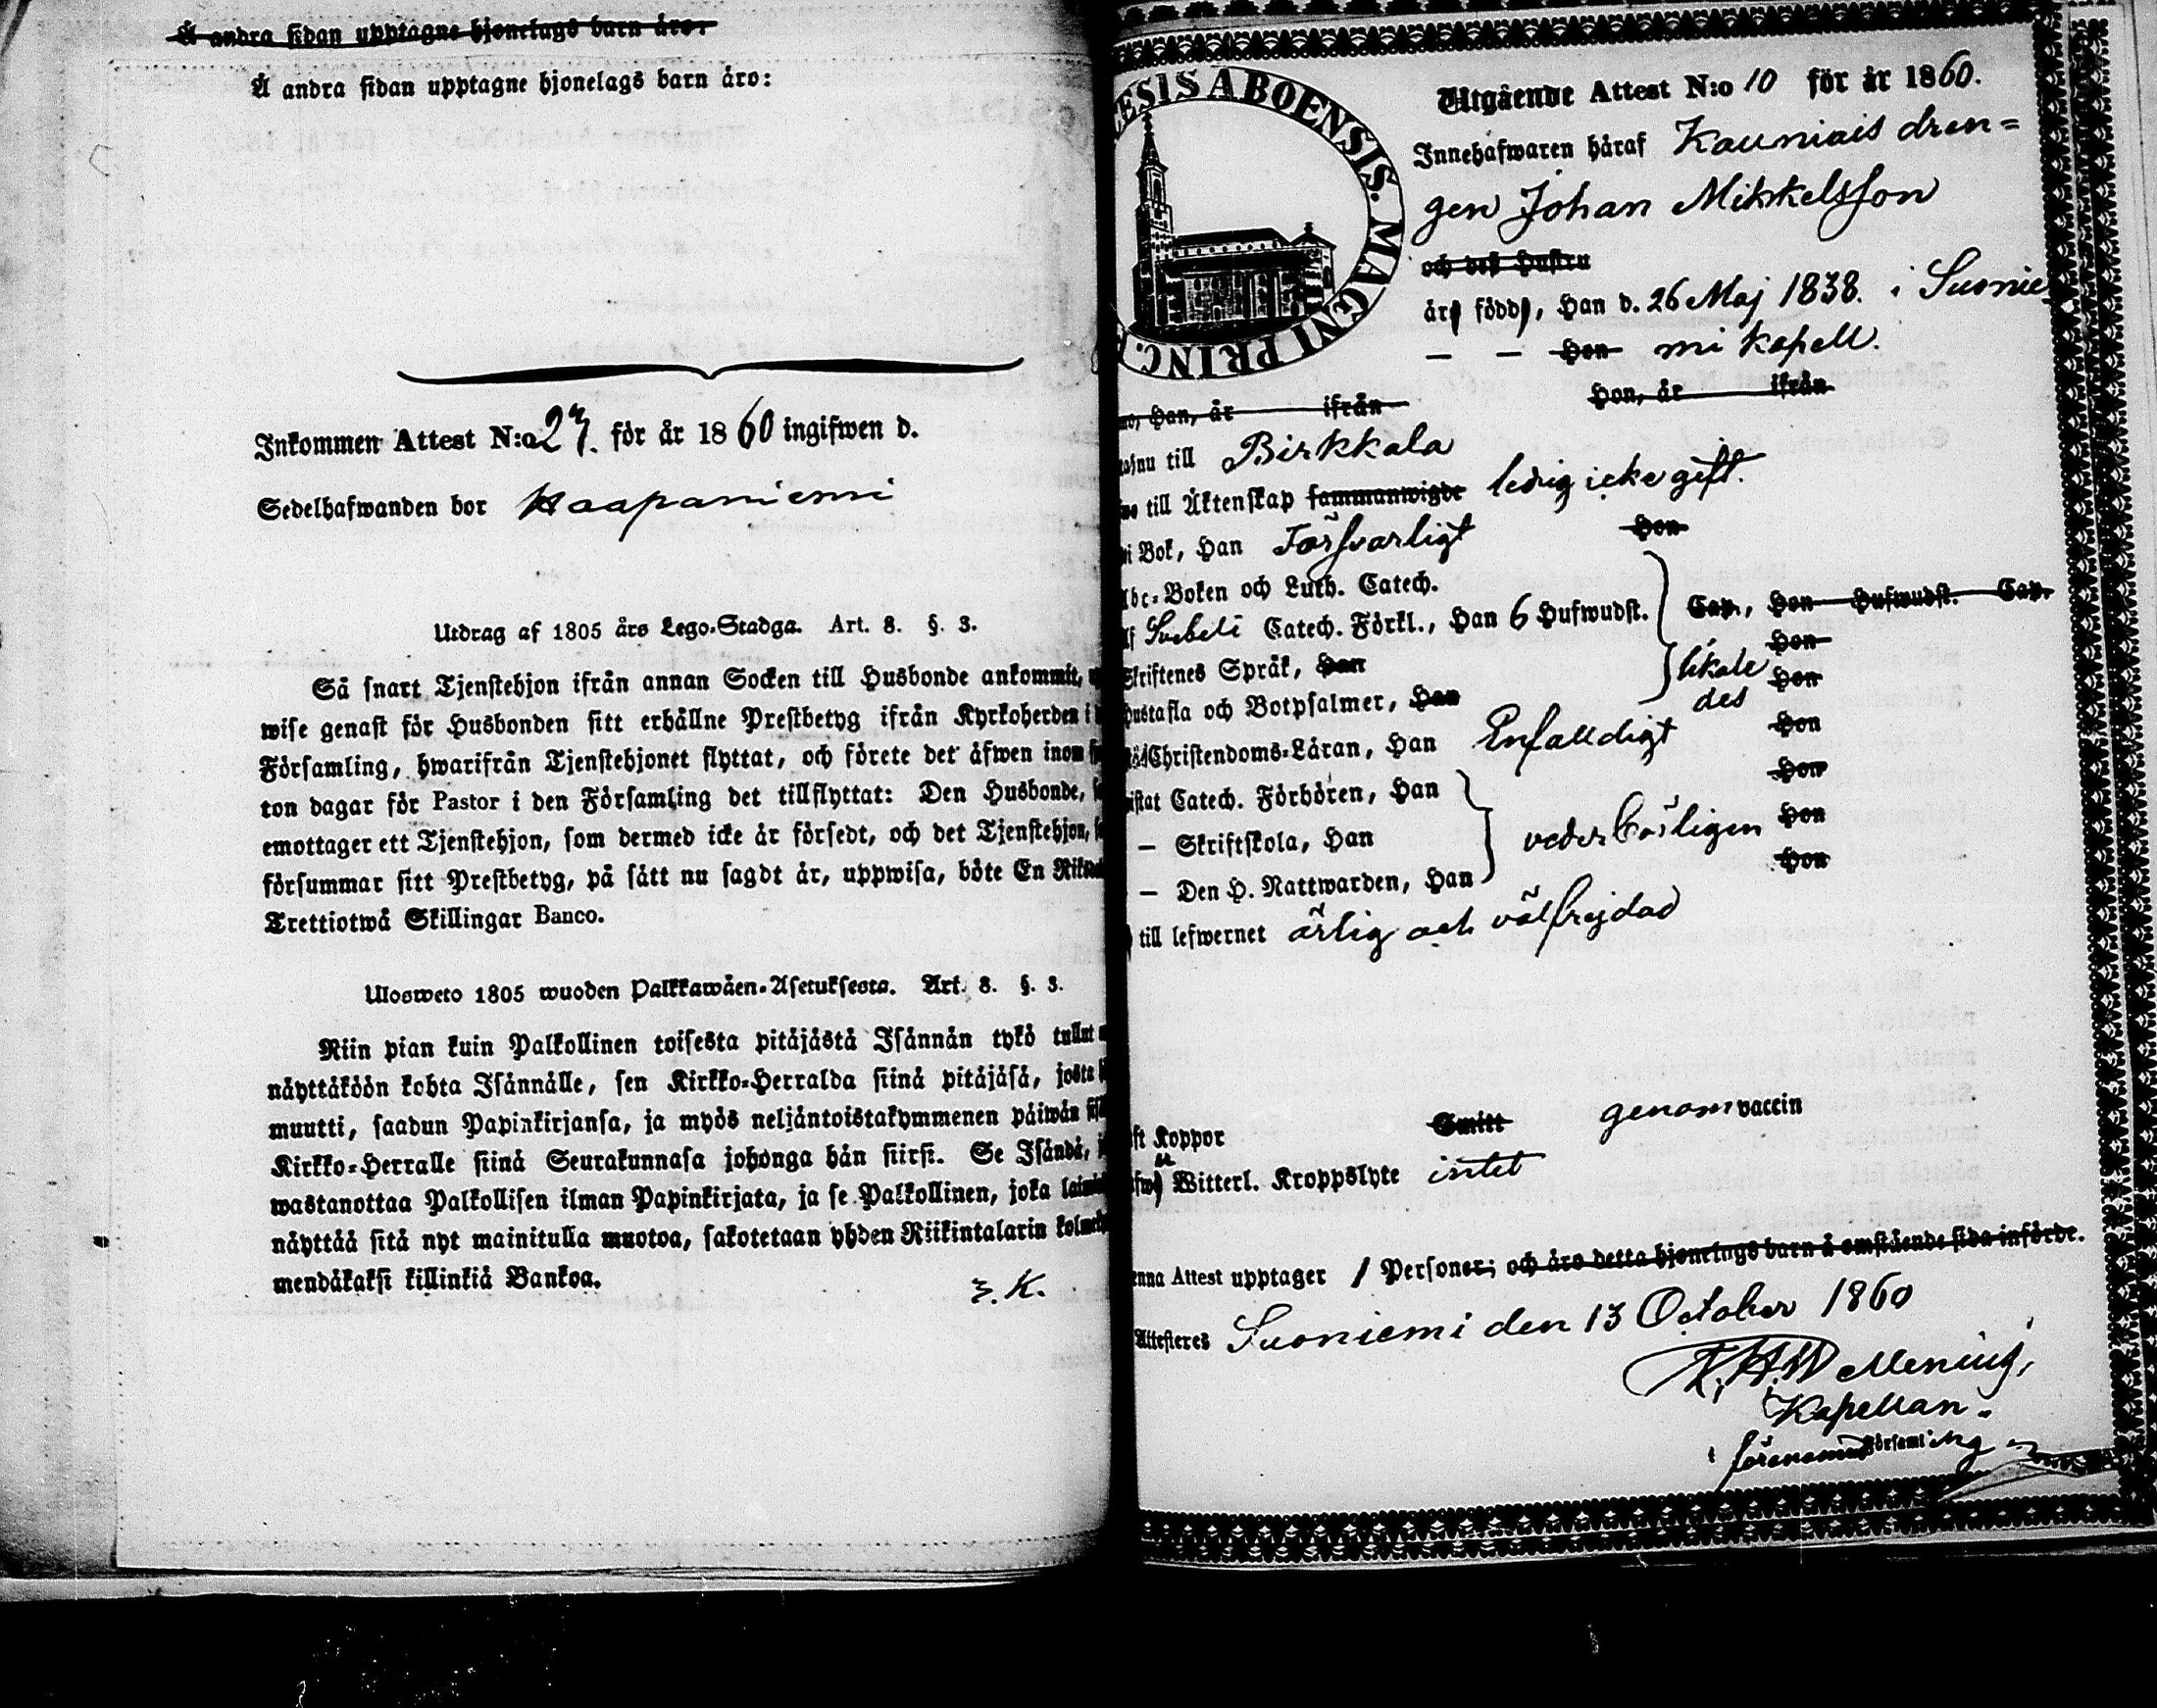 Å andra sidan upptagne hjonelags barn äro:
Å andra sidan upptagne hjonelags barn äro:
Inkommen Attest N:o 27. för år 1860 ingifwen d.
Sedelhafwanden bor Haapaniemi
Utdrag af 1805 års Lego-Stadga. Art. 8. §. 3.
Så snart Tjenstehjon ifrån annan Socken till Husbonde ankommit,
wise genast för Husbonden sitt erhållne Prestbetyg ifrån Kyrkoherden i
Församling, hwarifrån Tjenstehjonet flyttat, och förete det äfwen inom
ton dagar för Pastor i den Församling det tillflyttat: Den Husbonde,
emottager ett Tjenstehjon, som dermed icke är försedt, och det Tjenstehjon,
försummar sitt Prestbetyg, på sätt nu sagdt är, uppwisa, böte En
Trettiotwå Skillingar Banco.
Ulosweto 1805 wuoden Palkkawäen-Asetuksesta. Art. 8. §. 3.
Niin pian kuin Palkollinen toisesta pitäjästä Isännän tykö tullut
näyttäköön kohta Isännälle, sen Kirkko-Herralda siinä pitäjäsä, josta
muutti, saadun Papinkirjansa, ja myös neljäntoistakymmenen päiwän
Kirkko-Herralle siinä Seurakunnasa johonga hän siirsi. Se Isändä,
wastanottaa Palkollisen ilman Papinkirjata, ja se Palkollinen, joka
näyttää sitä nyt mainitulla muotoa, sakotetaan yhden Riikintalarin
mendäkaksi killinkiä Bankoa.
K.
ESIS ABOENSIS. MAGNI PRINC.
Utgående Attest N:o 10 för år 1860.
Innehafwaren häraf Kauniais dren=
gen Johan Mikkelsson
och dess Hustru
är född, Han d. 26 Maj 1838. i Suonie
— — Hon mi kapell.
Han, år ifrån Hon, år ifrån
till Birkkala
till Äktenskap sammanwigde ledig icke gift.
i Bok, Han Försvarligt Hon
Abc-Boken och Luth. Catech.
Svebeli Catech. Förkl., Han 6 Hufwudst. Cap., Hon Hufwudst. Cap.
Skriftenes Språk, Han Hon
Hustafla och Botpsalmer, Han likale Hon
des
Christendoms-Läran, Han Enfalldigt Hon
Catech. Förhören, Han Hon
— Skriftskola, Han vederbörligen Hon
— Den H. Nattwarden, Han Hon
till lefwernet ärlig och välfrejdad
Koppor Smitt genom vaccin
Witterl. Kroppslyte intet
Attest upptager 1 Personer; och äro detta hjonelags barn å omstående sida införde.
Attesteres Suoniemi den 13 October 1860
Kapellan.